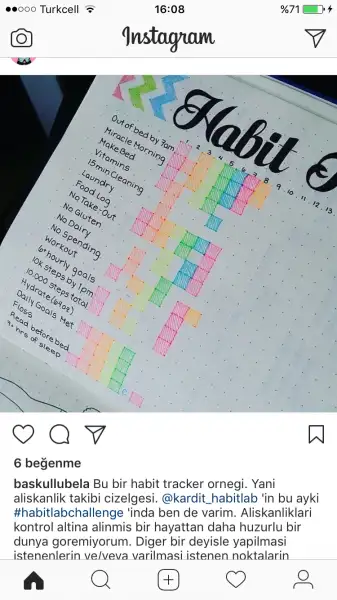 Turkcell 16:08 %71
Instagram
Habit
1 2 3 4 5 6 7 8 9 10 11 12 13
Out of bed by 7am
Miracle Morning
Make Bed
Vitamins
15min Cleaning
Laundry
Food Log
No Take-Out
No Gluten
No Dairy
No Spending
Workout
6* hourly goals
10K steps by 1pm
10,000 steps total
Hydrate (64oz)
Daily Goals Met
Floss
Read before bed
7+ hrs of sleep
6 beğenme
baskullubela Bu bir habit tracker ornegi. Yani
aliskanlik takibi cizelgesi. @kardit_habitlab 'in bu ayki
#habitlabchallenge 'inda ben de varim. Aliskanliklari
kontrol altina alinmis bir hayattan daha huzurlu bir
dunya goremiyorum. Diger bir deyisle yapilmasi
istenenlerin ve/veya varilmasi istenen noktalarin